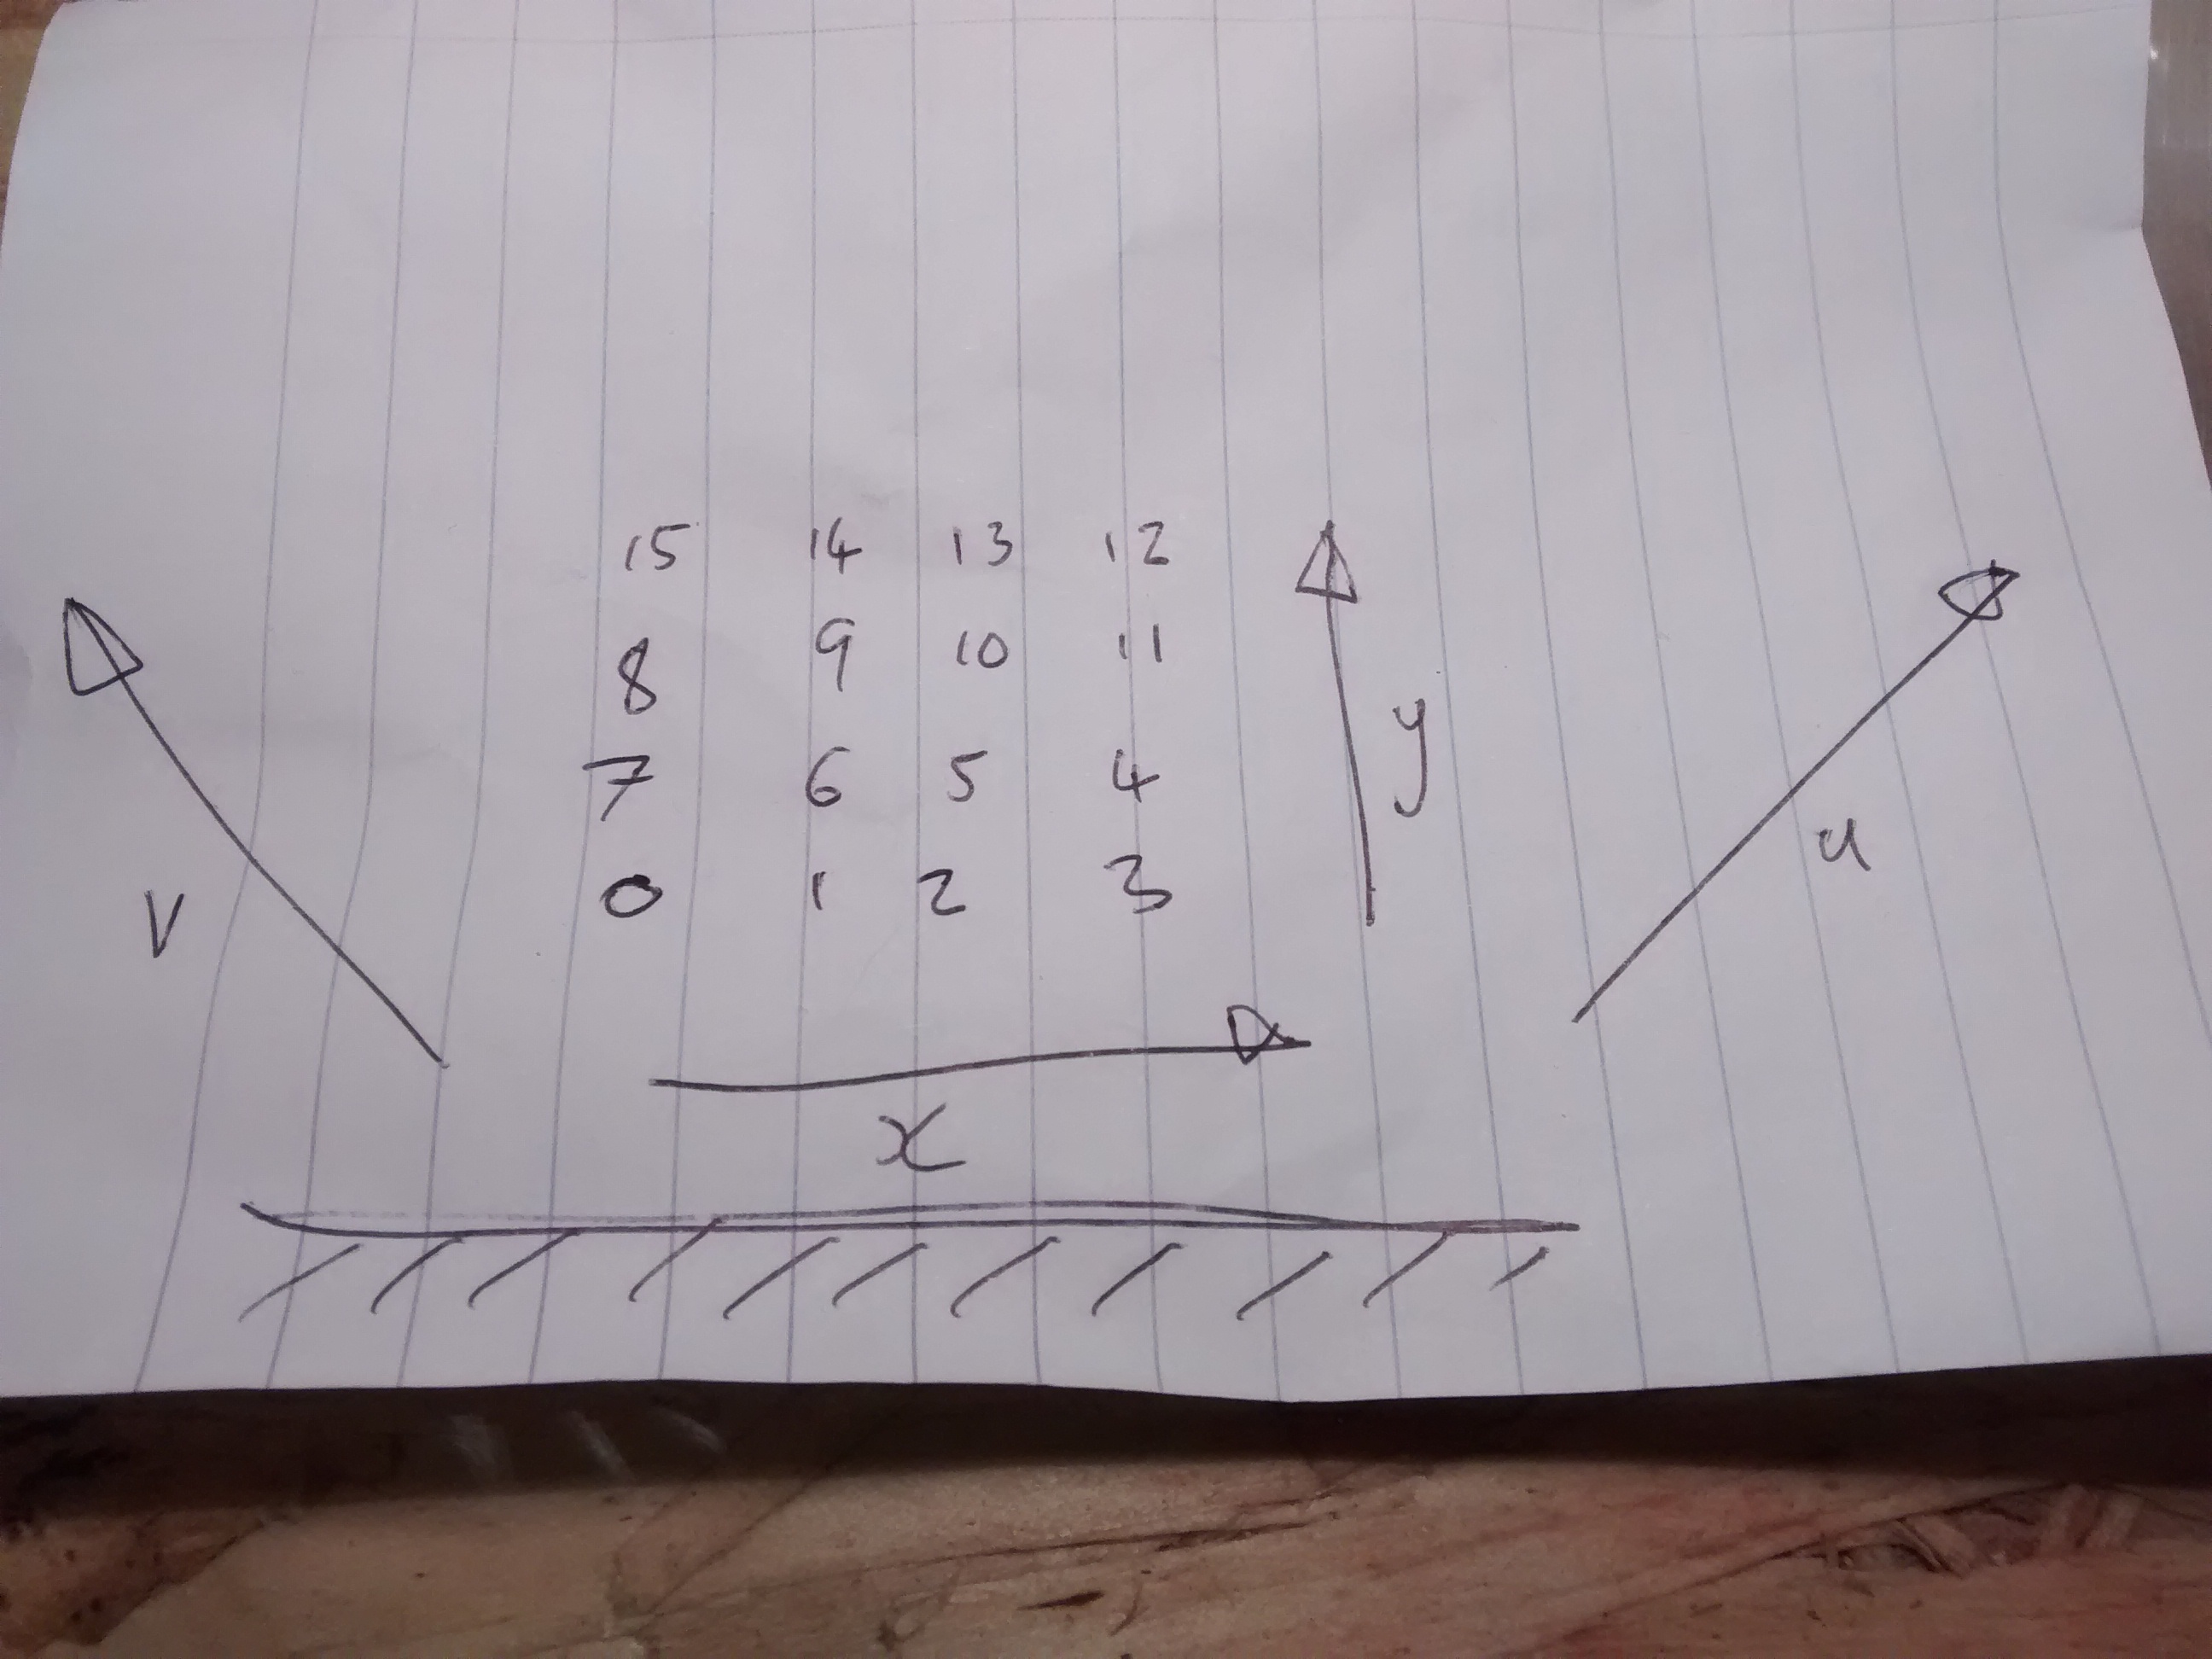 15 14 13 12
8 9 10 11
7 6 5 4
0 1 2 3
v
y
u
x